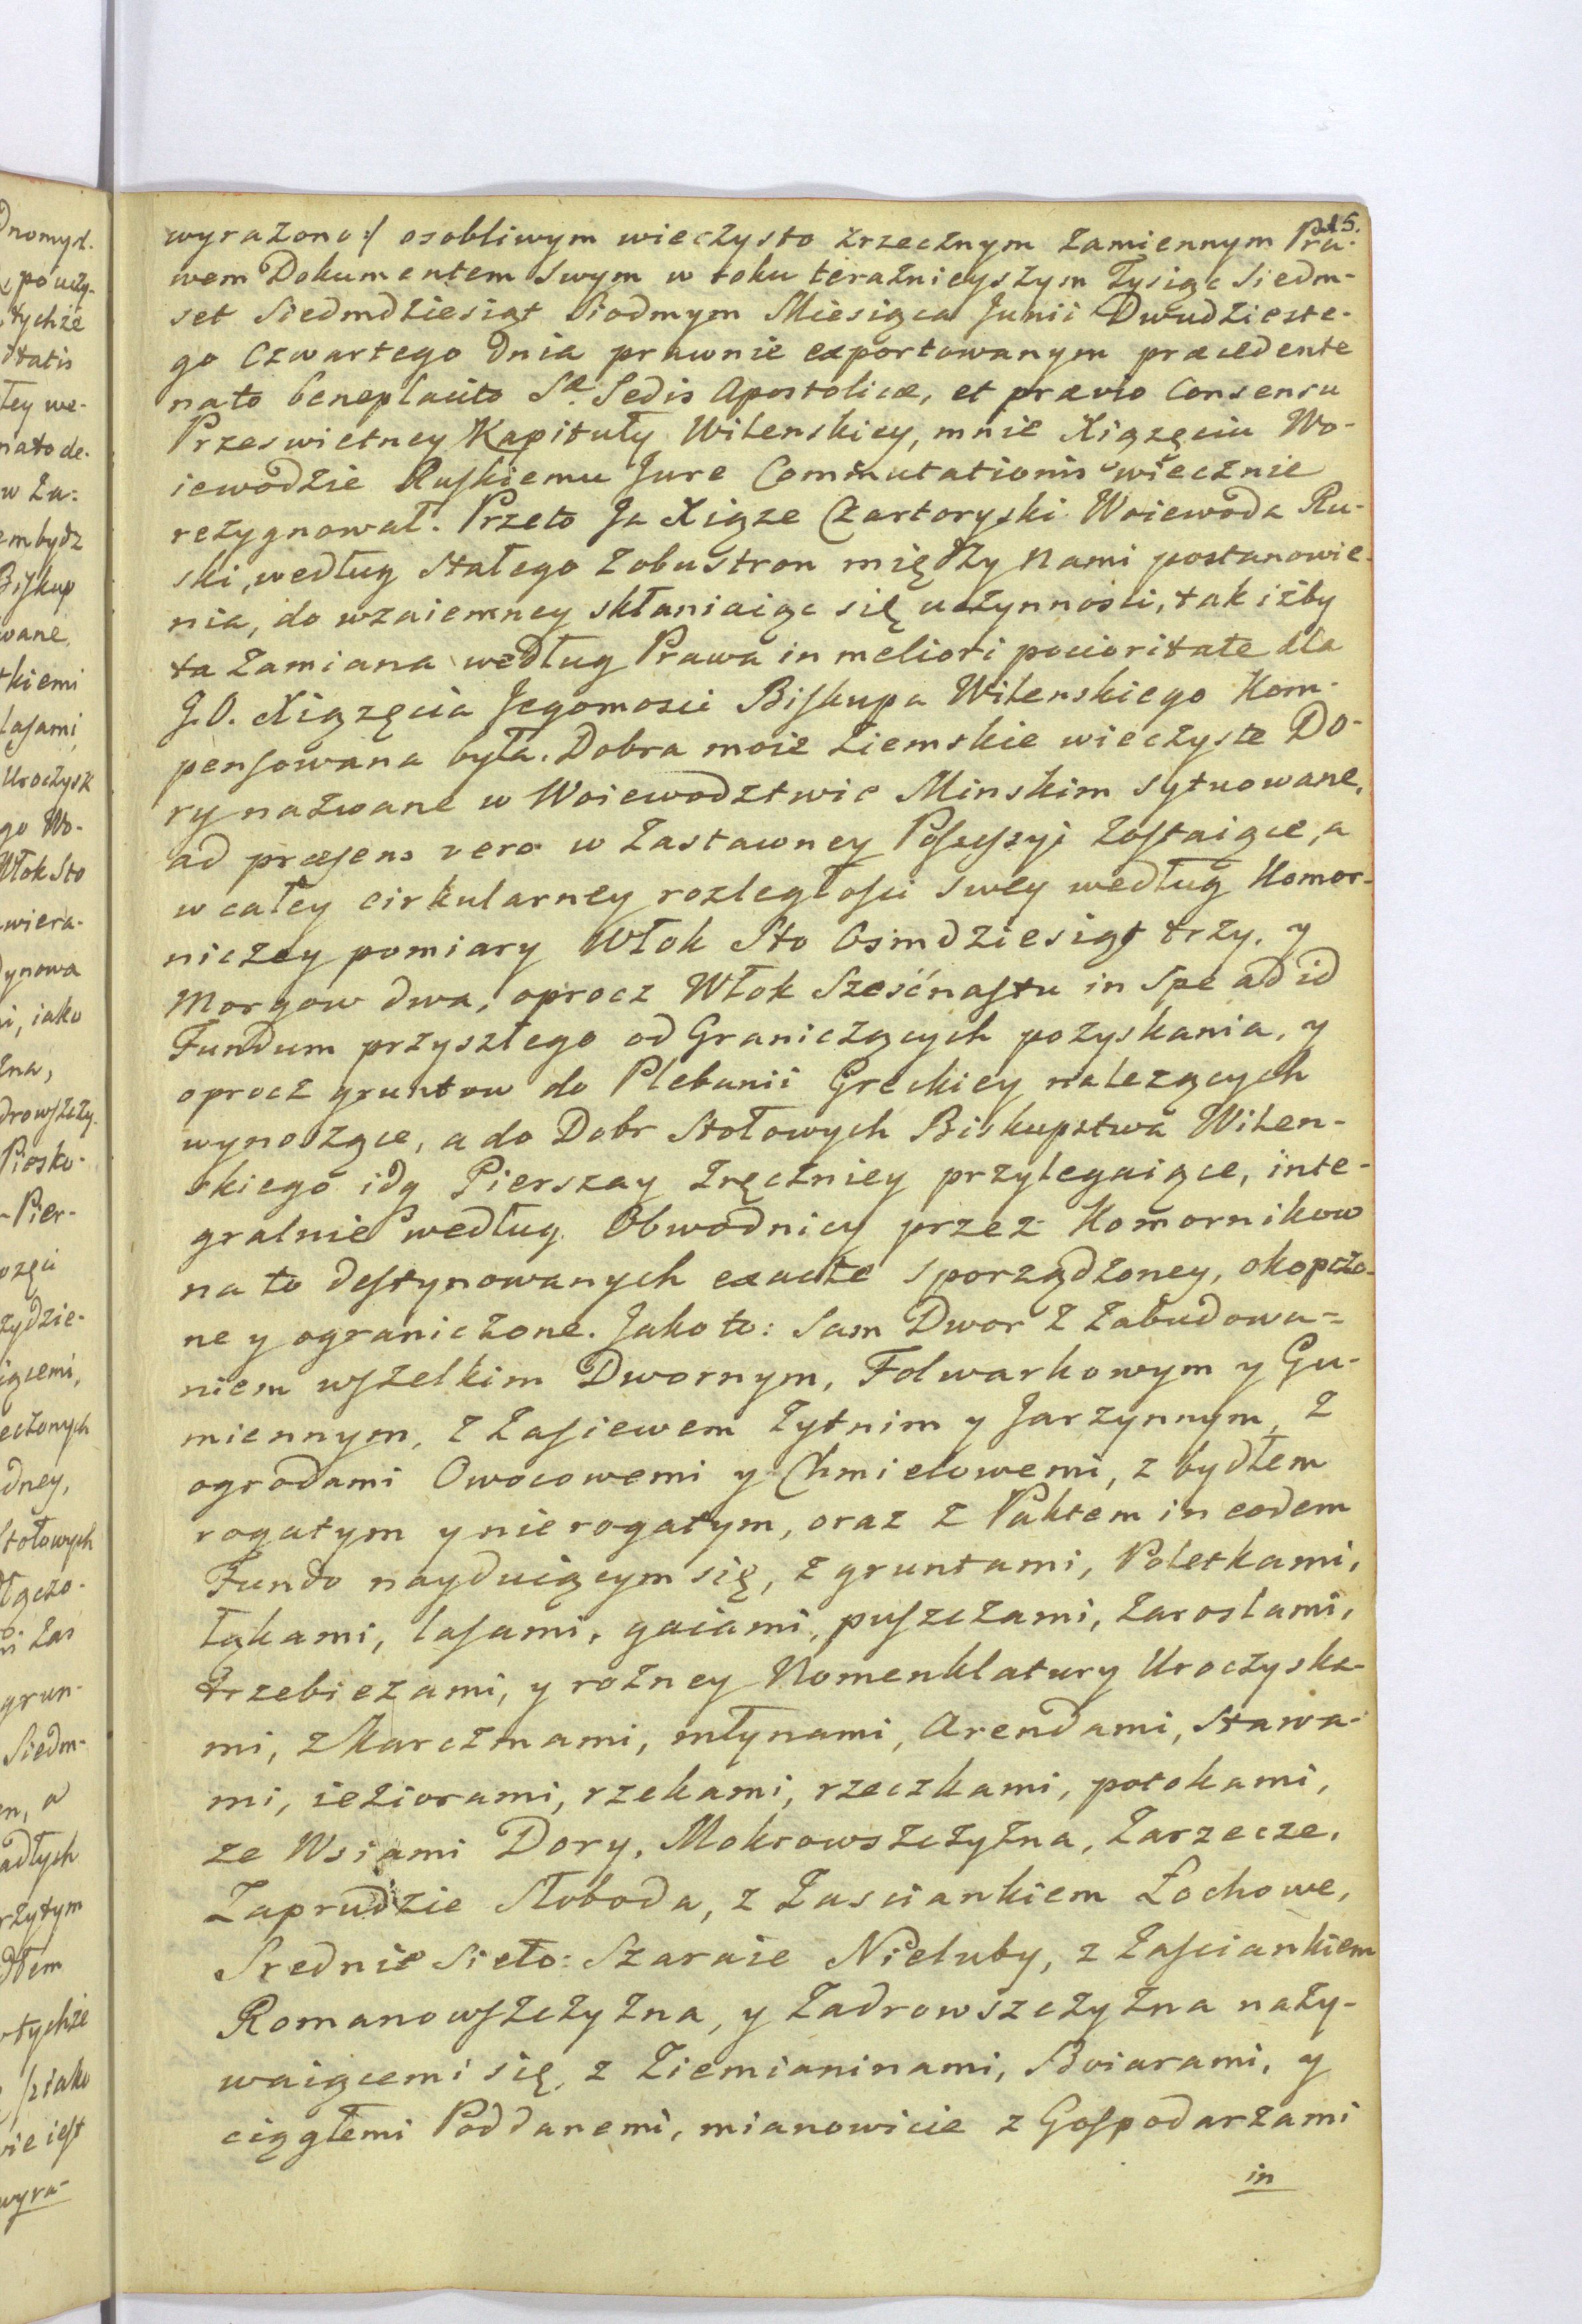 15.
wyrażono:/ osobliwym wieczysto zrzecznym zamiennym Pra-
wem Dokumentem swym w roku teraznieyszym Tysiąc Siedm-
set Siedmdziesiąt Siodmym Miesiąca Junii Dwudzieste-
go Czwartego Dnia prawnie exportowanym præcedente
na to beneplacito Sæ. Sedis Apostolicæ, et prævio Consensu
Przeswietney Kapituły Wilenskiey, mnie Xiązęciu Wo-
iewodzie Ruskiemu Jure Commutationis wiecznie
rezygnował. Przeto Ja Xiąze Czartoryski Woiewoda Ru-
ski, według stałego z obustron między Nami postanowie-
nia, do wzaiemney skłaniaiąc się uczynności, tak iżby
ta zamiana według Prawa in meliori pocioritate dla
J.O. Xiązęcia Jegomosci Biskupa Wilenskiego Kom-
pensowana była. Dobra moie Ziemskie wieczyste Do-
ry nazwane w Woiewodztwie Minskim sytuowane,
ad præsens vero w Zastawney Possessyi zostaiące, a
w całey cirkularney rozległosci swey według Komor-
niczey pomiary Włok Sto Osmdziesiąt trzy, y
Morgow dwa, oprocz Włok Sześćnastu in Spe ad id
Fundum przyszłego od Graniczących pozyskania, y
oprocz gruntow do Plebanii Greckiey nalezących
wynoszące, a do Dobr Stołowych Biskupstwa Wilen-
skiego idą Pierszay zręczniey przylegaiące, inte-
gralnie według Obwodnicy przez Komornikow
na to destynowanych exacte sporządzoney, okopczo-
ne y ograniczone. Jako to: Sam Dwor z zabudowa-
niem wszelkim Dwornym, Folwarkowym y Gu-
miennym, z zasiewem Zytnim y Jarzynnym, z
ogrodami Owocowemi y Chmielowemi, z bydłem
rogatym y nierogatym, oraz z Paktem in eodem
Fundo nayduiącym się, z gruntami, Poletkami,
łąkami, lasami, gaiami, puszczami, zaroslami,
trzebiezami, y rożney Nomenklatury Uroczyska-
mi, z Karczmami, młynami, Arendami, Stawa-
mi, ieziorami, rzekami, rzeczkami, potokami,
ze Wsiami Dory, Mokrowszczyzna, Zarzecze,
Zaprudzie Słoboda, z Zasciankiem Łochowe,
Srednie Sieło: Szaraie Nieluby, z Zasciankiem
Romanowszczyzna, y Zadrowszczyzna nazy-
waiącemi się, z Ziemianinami, Boiarami, y
ciągłemi Poddanemi, mianowicie z Gospodarzami
in